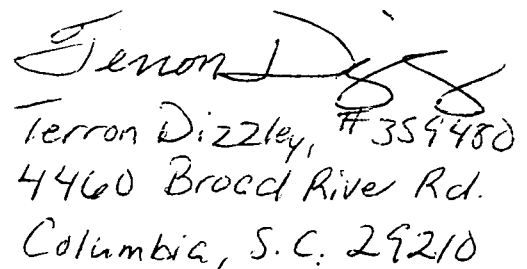 Terron Dizzley
Terron Dizzley, #359480
4460 Broad River Rd.
Columbia, S.C. 29210